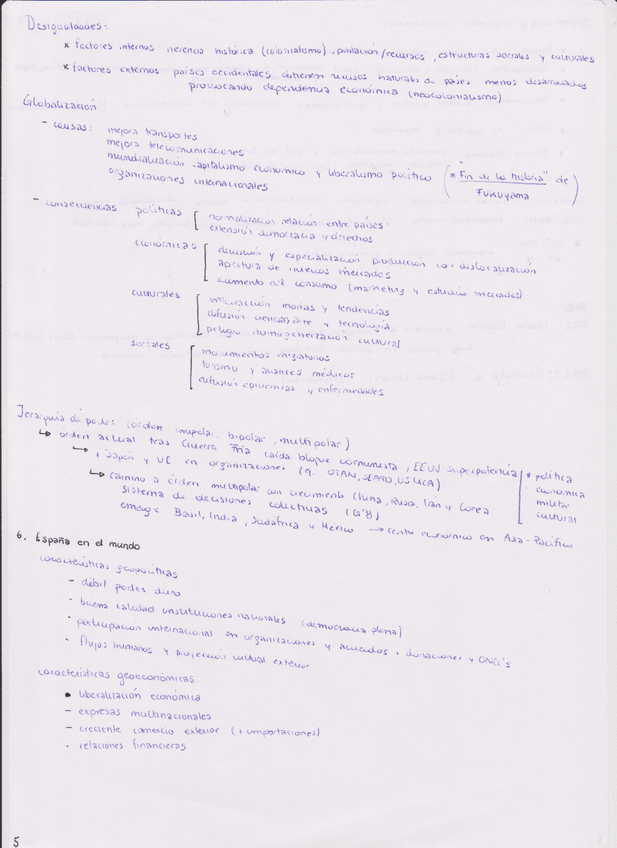 Desigualdades:
x factores internos herencia histórica (colonialismo), población/recursos, estructuras sociales y culturales
x factores externos países occidentales obtienen recursos naturales de países menos desarrollados
provocando dependencia económica (neocolonialismo)
Globalización
- causas: mejora transportes
mejora telecomunicaciones
mundialización capitalismo económico y liberalismo político (* "Fin de la historia" de
FUKUYAMA)
organizaciones internacionales
- consecuencias políticas [ normalización relación entre países
extensión democracia y derechos
económicas [ división y especialización producción → dislocalización
apertura de nuevos mercados
aumento del consumo (marketing y estudio mercados)
culturales [ interacción modas y tendencias
difusión y tecnología
peligro homogeneización cultural
sociales [ movimientos migratorios
turismo y avances médicos
difusión epidemias y enfermedades
Jerarquía de poder (órden unipolar, bipolar, multipolar)
↳ órden actual tras Guerra Fría caída bloque comunista, EEUU superpotencia [ * política
económica
militar
cultural
↳ Japón y UE en organizaciones (OTAN, SEATO, USMCA)
↳ camino a órden multipolar con crecimiento China, Rusia, Irán y Corea
sistema de decisiones colectivas (G'8)
emerge Brasil, India, Sudáfrica y México → centro económico en Asia-Pacífico
6. España en el mundo
características geopolíticas
- débil poder duro
- buena calidad instituciones nacionales (democracia plena)
- participación internacional en organizaciones y acuerdos, donaciones y ONG's
- flujos humanos y proyección cultural exterior
características geoeconómicas:
• liberalización económica
- expresas multinacionales
- creciente comercio exterior (+ importaciones)
- relaciones financieras
5